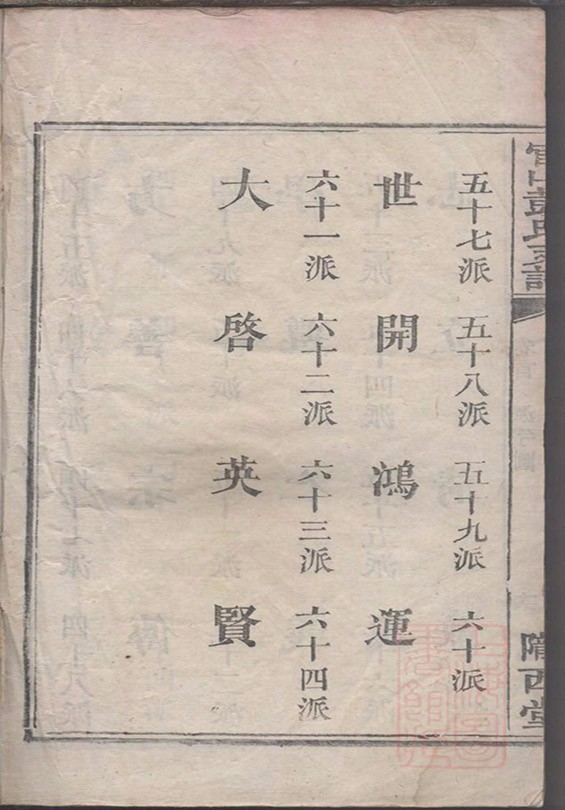 五十七派 五十八派 五十九派 六十派
世 開 鴻 運
六十一派 六十二派 六十三派 六十四派
大 啓 英 賢